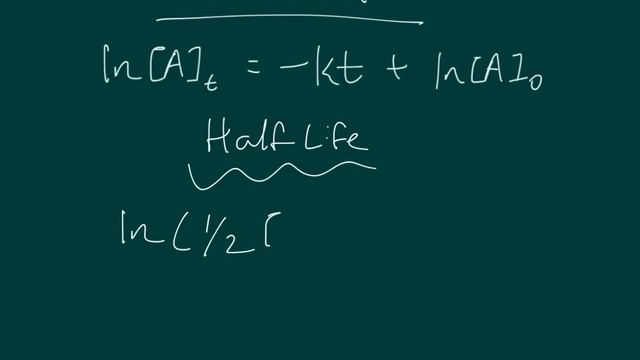 ln[A]ₜ = -kt + ln[A]₀
Half Life
ln(1/2 [